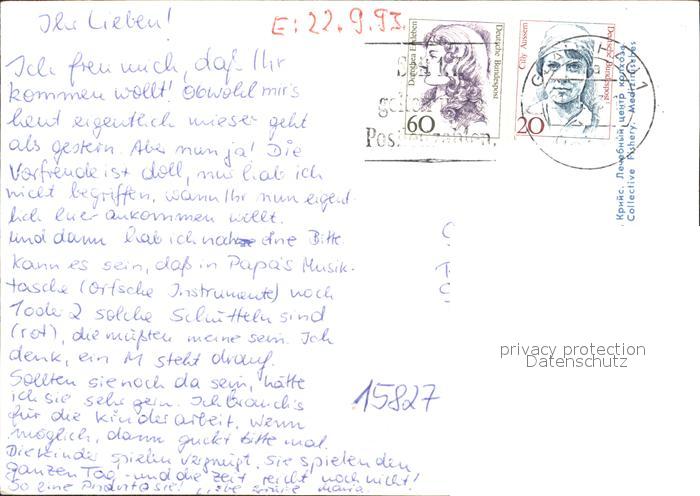 Ihr Lieben!
E: 22.9.93.
Ich freu mich, daß Ihr
kommen wollt! Obwohl mir's
heut eigentlich mieser geht
als gestern. Aber nun ja! Die
Vorfreude ist doll, nur hab ich
nicht begriffen, wann Ihr nun eigent-
lich hier ankommen wollt.
Und dann hab ich noch eine Bitte.
Kann es sein, daß in Papa's Musik-
tasche (Orfsche Instrumente) noch
1 oder 2 solche Schütteln sind
(rot), die müßten meine sein. Ich
denk, ein M steht drauf.
Sollten sie noch da sein, hätte
ich sie sehr gern. Ich brauch's
für die Kinderarbeit, wenn
möglich, dann guckt bitte mal.
Die Kinder spielen vergnügt, sie spielen den
ganzen Tag - und die Zeit reicht noch nicht!
So eine Phantasie! Maria.
Dorothea Erxleben
Deutsche Bundespost
60
Cilly Aussem
Deutsche Bundespost
20
Крийс. Лечебный центр колхоза
Collective Fishery Medical Centre
15827
privacy protection
Datenschutz